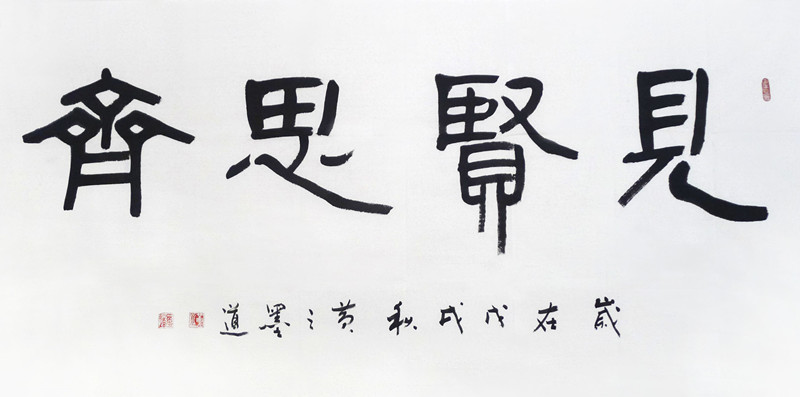 見賢思齊
歲在戊戌秋黄之墨道